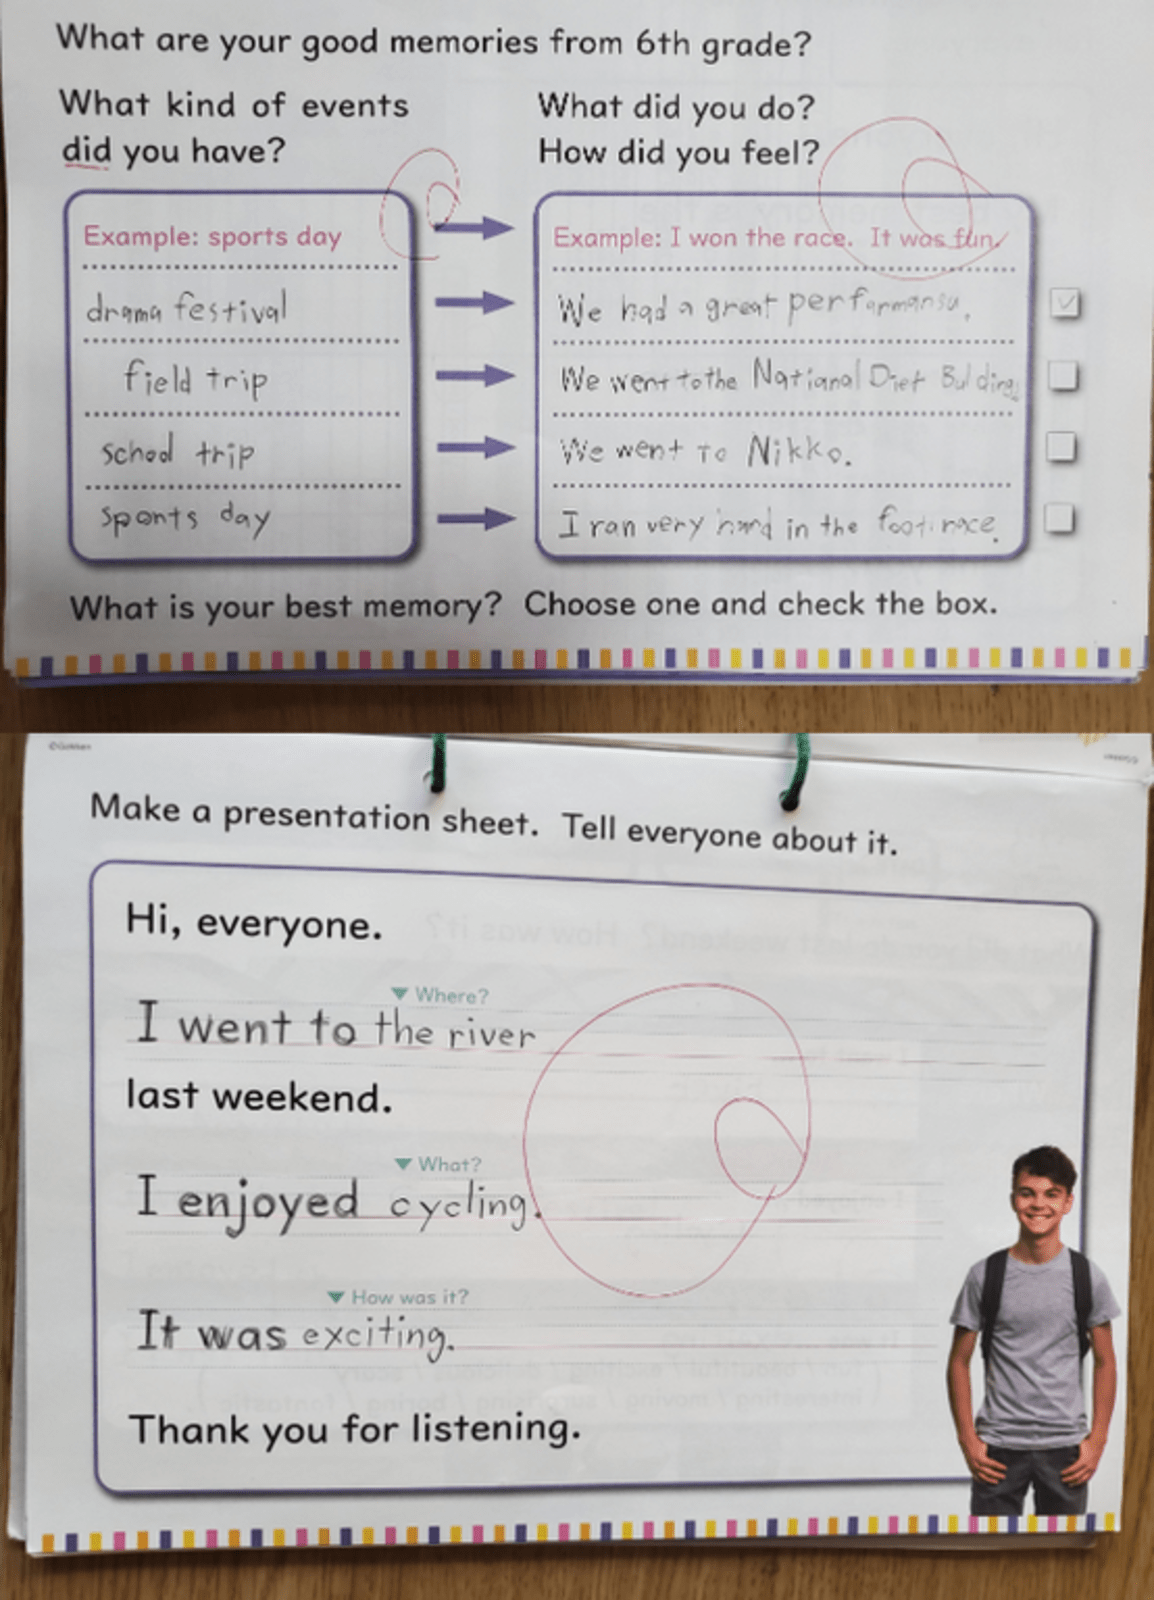 What are your good memories from 6th grade?
What kind of events
did you have?
What did you do?
How did you feel?
Example: sports day
Example: I won the race. It was fun.
drama festival
We had a great perfarmansu.
field trip
We went to the National Diet Bulding.
school trip
We went to Nikko.
sports day
I ran very hard in the foot race.
What is your best memory? Choose one and check the box.
©Gakken
Make a presentation sheet. Tell everyone about it.
Hi, everyone.
▼ Where?
I went to the river
last weekend.
▼ What?
I enjoyed cycling.
▼ How was it?
It was exciting.
Thank you for listening.